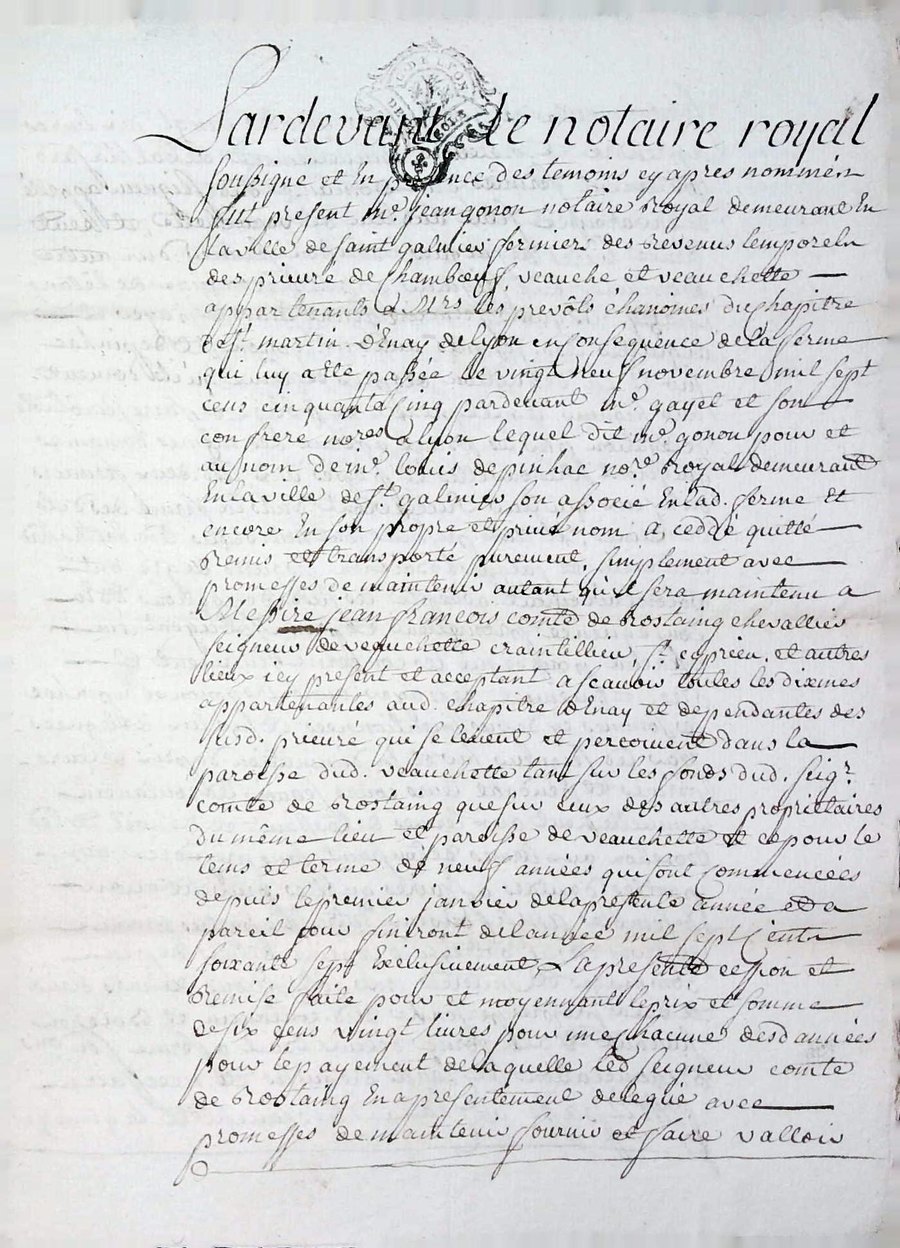 Pardevant le notaire royal
soussigne et en presence des temoins cy apres nommés
fut present me. jean gonon notaire Royal demeurant En
la ville de saint galmier fermier des Revenus temporels
des prieuré de Chambœuf, veauche et veauchette
appartenants a Mrs. les prevôts chanoines du chapitre
de st. martin D'Enay de lyon en Consequence de la ferme
qui luy a Ete passée le vingt neuf novembre mil sept
Cens cinquante Cinq pardevant me. gayet et son
confrere nores. a lyon lequel dit me. gonon pour et
au nom de me. louis depinhac nore. Royal demeurant
En la ville de st. galmier son associé En lad. ferme Et
encore En son propre et privé nom a ceddé quitté
Remis et transporté purement, simplement avec
promesses de maintenir autant qu'il sera maintenu a
Messire jean francois comte de Rostaing chevallier
seigneur de veauchette craintillieu, st. cyprien, et autres
lieux icy present et acceptant a scavoir toutes les dixmes
appartenantes aud. chapitre d'Enay et dependantes des
susd. prieuré qui se levent et percoivent dans la
paroisse dud. veauchette tant sur les fonds dud. seigr.
comte de Rostaing que sur ceux des autres proprietaires
du même lieu et paroisse de veauchette et ce pour le
tems et terme de neuf années qui sont Commencées
depuis le premier janvier de la presente année et a
pareil jour finiront de l'année mil sept Cents
soixante sept Exclusivement, La presente cession et
Remise faite pour et moyennant le prix et somme
de six Cens vingt livres pour une chacune desd années
pour le payement de laquelle led seigneur comte
de Rostaing En a presentement delegué avec
promesses de maintenir fournir et faire valloir